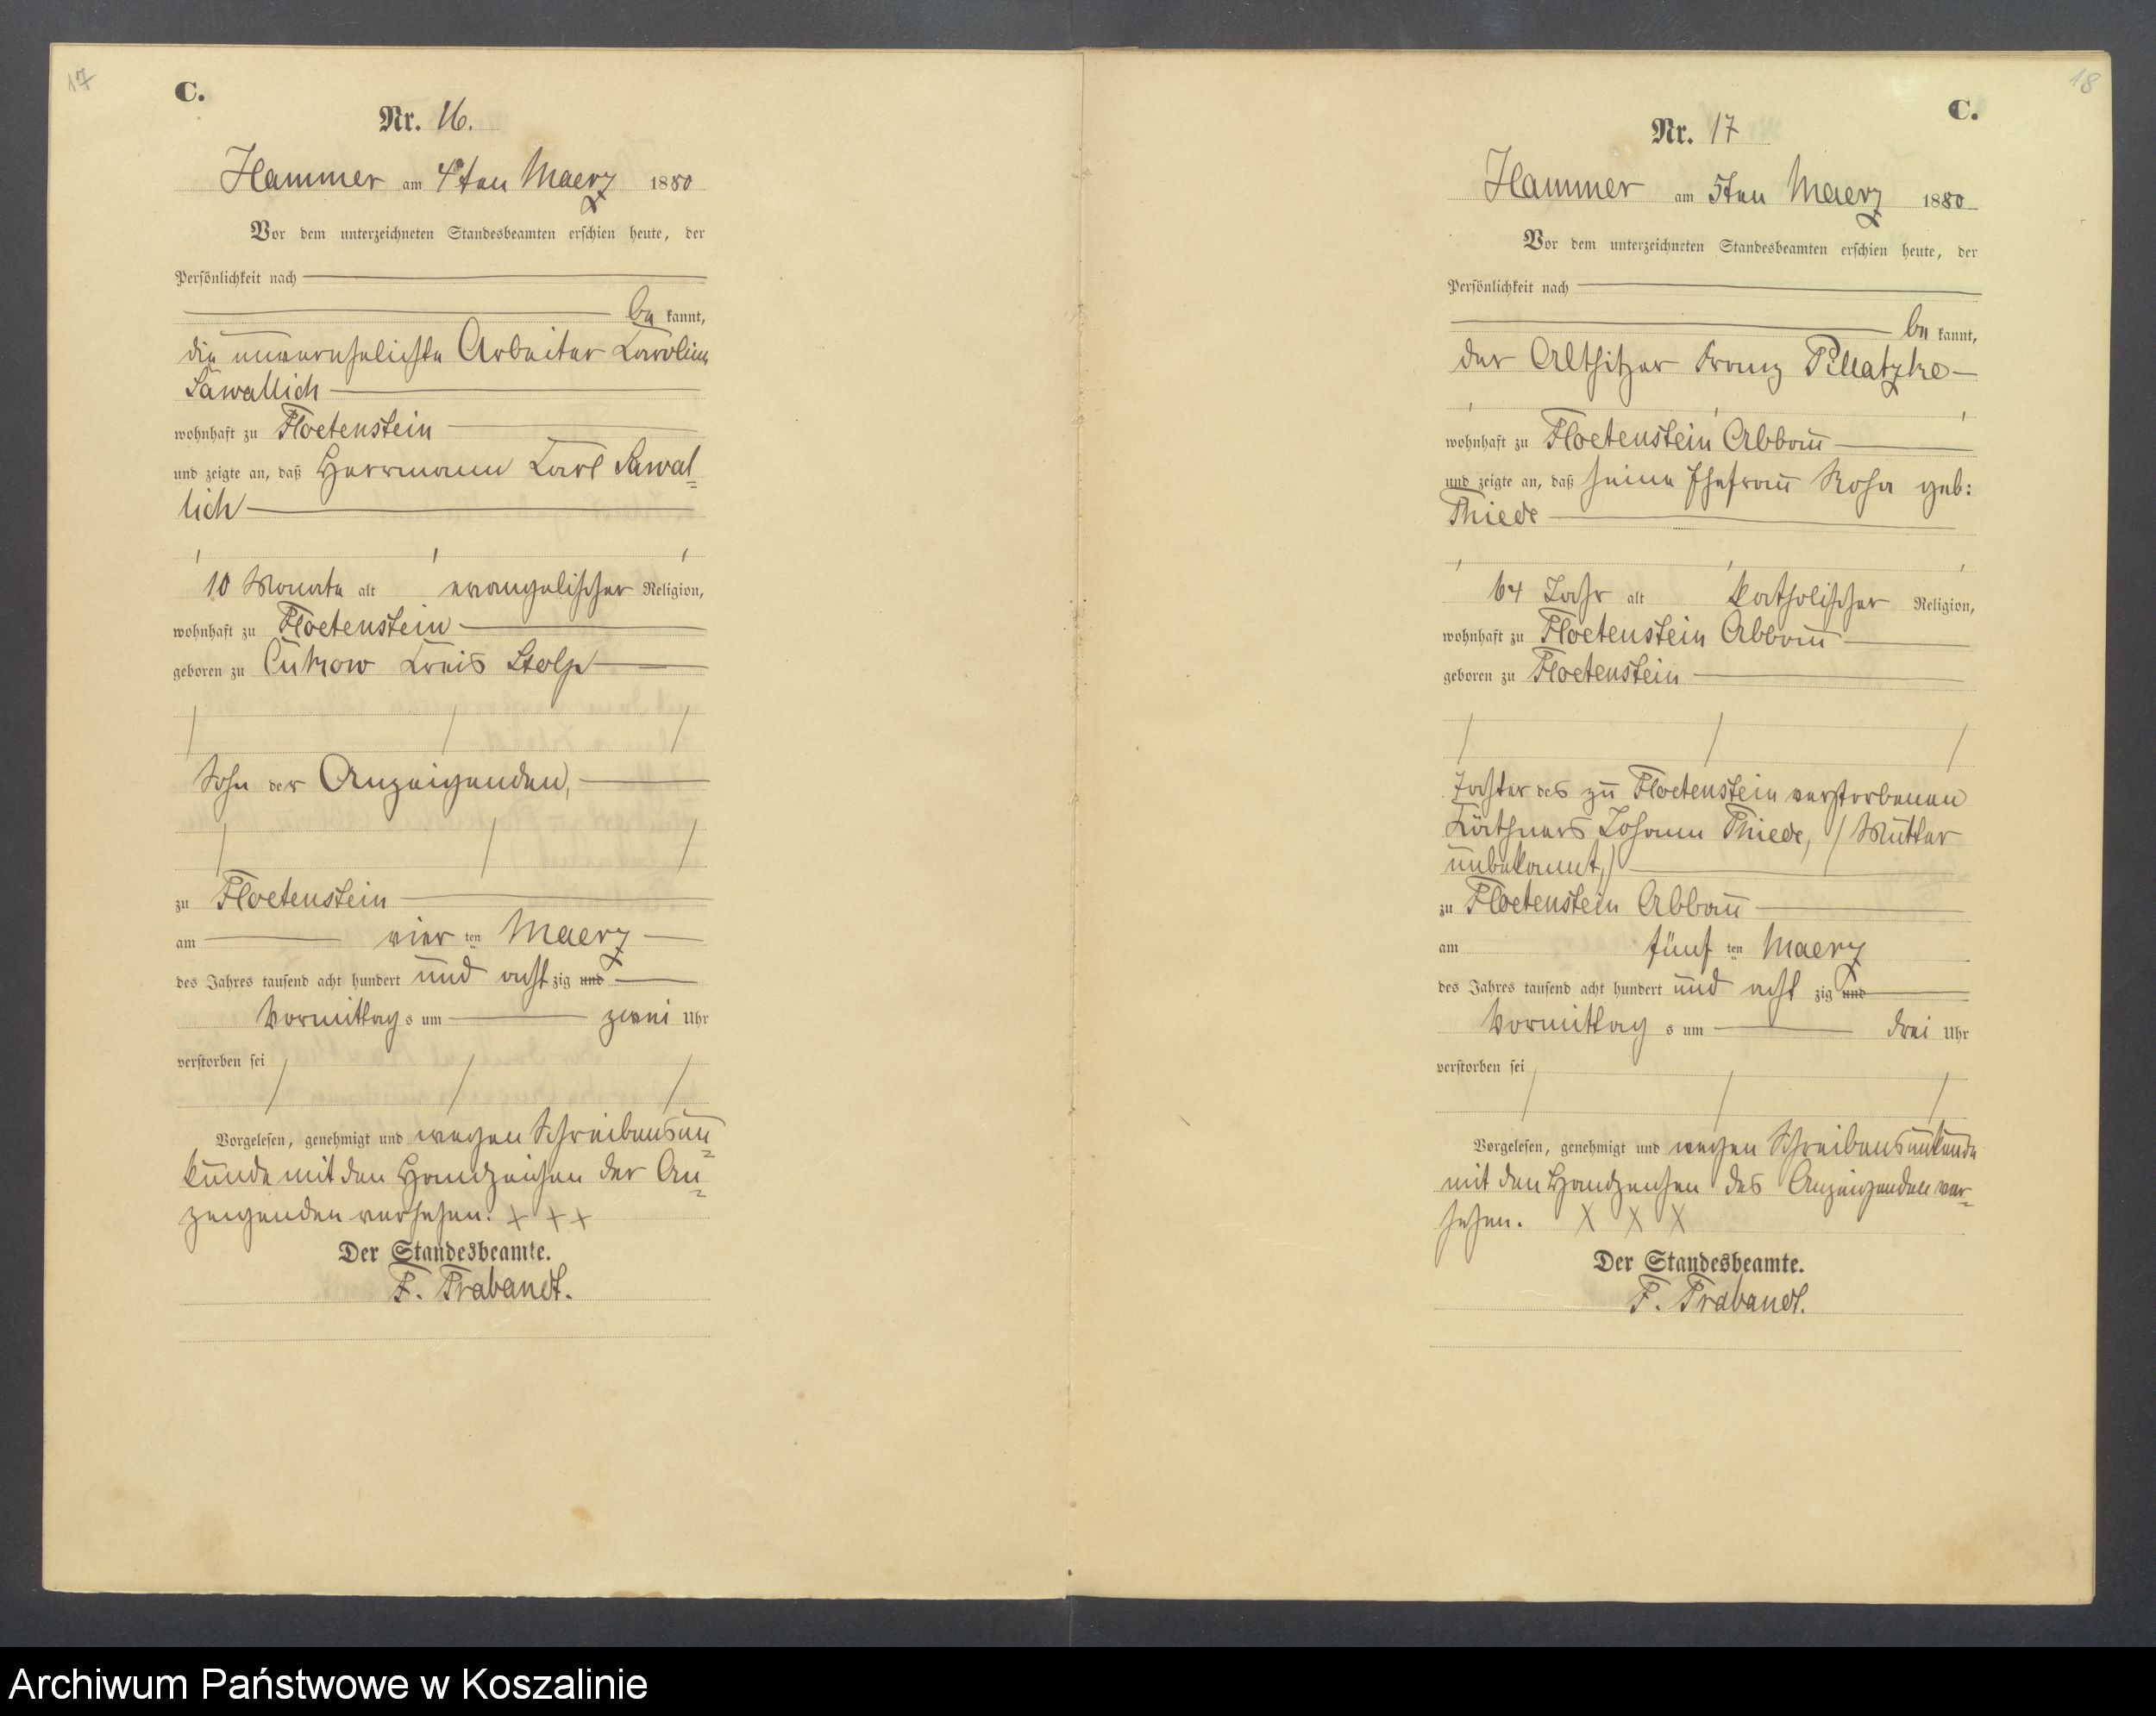 17
C.
Nr. 16.
Hammer am 4ten Maerz 1880
Vor dem unterzeichneten Standesbeamten erschien heute, der
Persönlichkeit nach
be kannt,
die unverehelichte Arbeiter Karoline
Sawallich
wohnhaft zu Floetenstein
und zeigte an, daß Herrmann Karl Sawal=
lich
10 Monate alt evangelischer Religion,
wohnhaft zu Floetenstein
geboren zu Kreis Stolp
Sohn der Anzeigenden,
zu Floetenstein
am vier ten Maerz
des Jahres tausend acht hundert und acht zig und
Vormittag s um zwei Uhr
verstorben sei
Vorgelesen, genehmigt und wegen Schreibensun=
kunde mit den Handzeichen der An=
zeigenden versehen. + + +
Der Standesbeamte.
F. Trabandt.
18
C.
Nr. 17
Hammer am 5ten Maerz 1880
Vor dem unterzeichneten Standesbeamten erschien heute, der
Persönlichkeit nach
be kannt,
der Altsitzer Franz Pillatzke
wohnhaft zu Floetenstein Abbau
und zeigte an, daß seine Ehefrau Rosa geb:
Thiede
64 Jahr alt katholischer Religion,
wohnhaft zu Floetenstein Abbau
geboren zu Floetenstein
Tochter des zu Floetenstein verstorbenen
Käthners Johann Thiede, (Mutter
unbekannt,)
zu Floetenstein Abbau
am fünf ten Maerz
des Jahres tausend acht hundert und acht zig und
Vormittag s um drei Uhr
verstorben sei
Vorgelesen, genehmigt und wegen Schreibensunkunde
mit den Handzeichen des Anzeigenden ver=
sehen. X X X
Der Standesbeamte.
F. Trabandt.
Archiwum Państwowe w Koszalinie